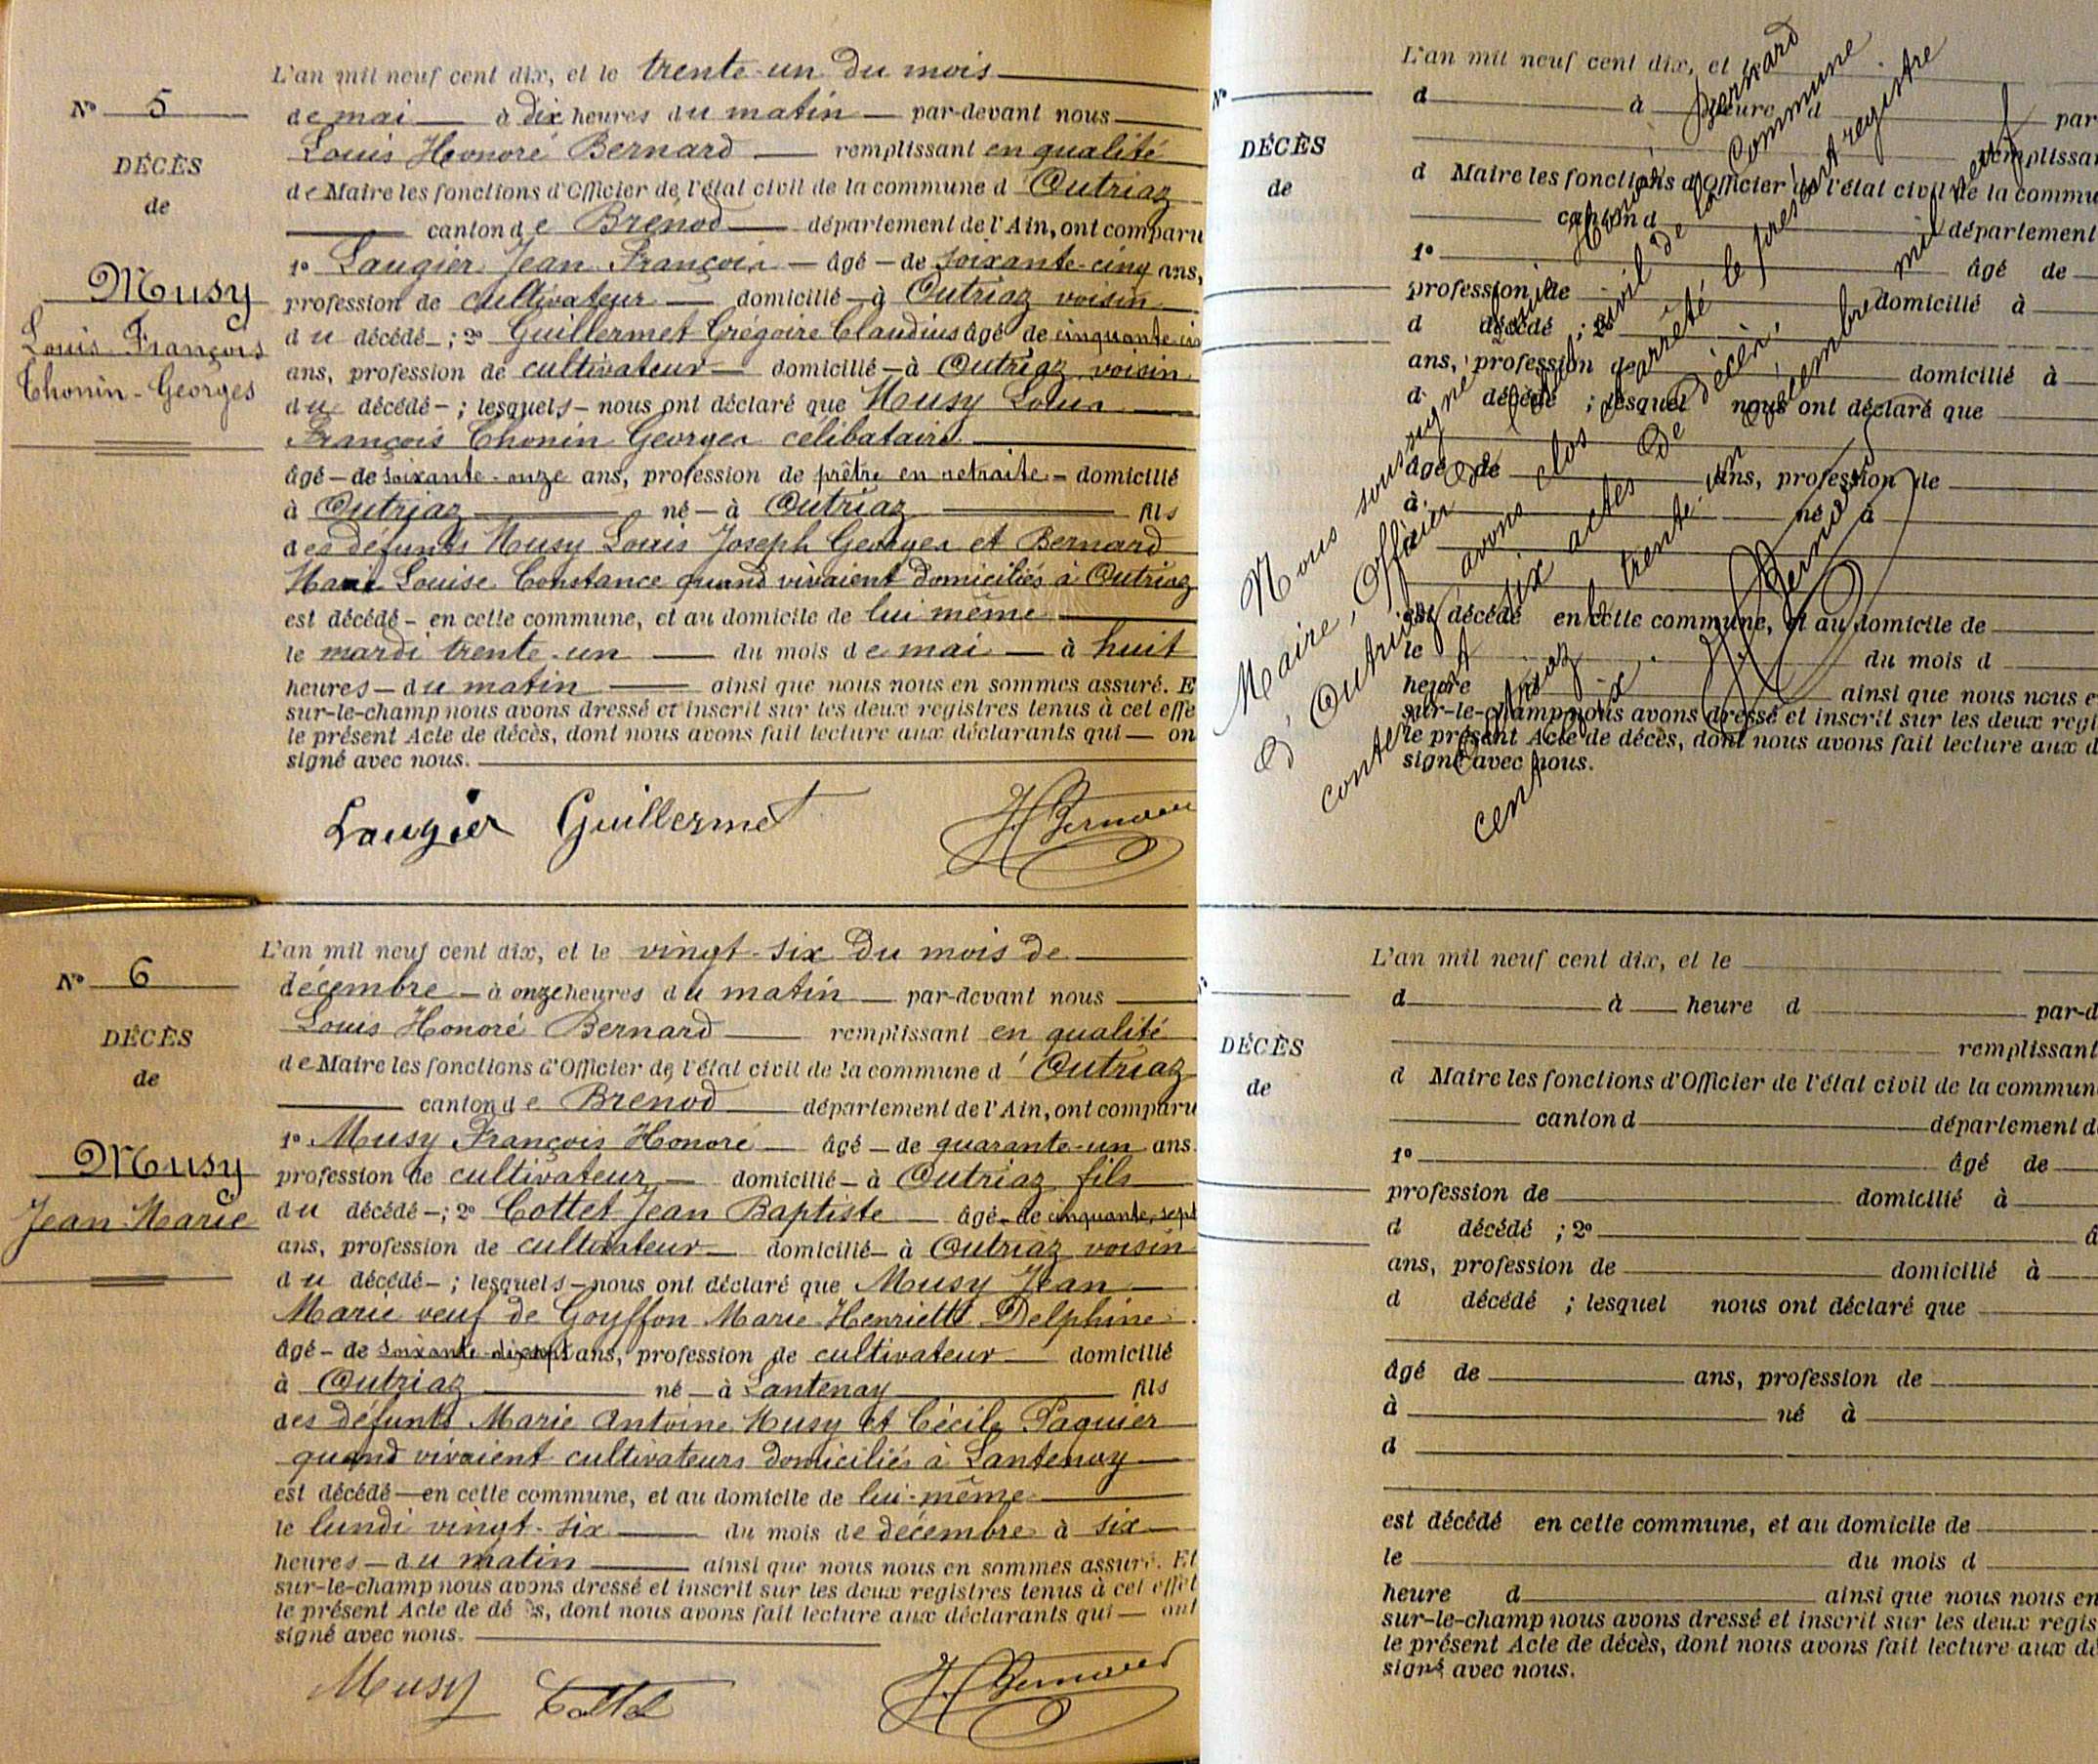 L'an mil neuf cent dix, et le trente-un du mois
Nº 5
de mai à dix heures du matin par-devant nous
Louis Honoré Bernard remplissant en qualité
DÉCÈS
de Maire les fonctions d'Officier de l'état civil de la commune d'Outriaz
de
canton de Brénod département de l'Ain, ont comparu
1º Laugier Jean François âgé de soixante-cinq ans,
Musy
profession de cultivateur domicilié à Outriaz voisin
Louis François
du décédé ; 2º Guillermet Grégoire Claudius âgé de cinquante
Thonin-Georges
ans, profession de cultivateur domicilié à Outriaz voisin
du décédé ; lesquels nous ont déclaré que Musy Louis
François Thonin Georges célibataire
âgé de soixante-onze ans, profession de prêtre en retraite domicilié
à Outriaz né à Outriaz fils
des défunts Musy Louis Joseph Georges et Bernard
Marie Louise Constance quand vivaient domiciliés à Outriaz
est décédé en cette commune, et au domicile de lui même
le mardi trente-un du mois de mai à huit
heures du matin ainsi que nous nous en sommes assuré. E
sur-le-champ nous avons dressé et inscrit sur les deux registres tenus à cet effe
le présent Acte de décès, dont nous avons fait lecture aux déclarants qui on
signé avec nous.
Laugier Guillermet H Bernard
L'an mil neuf cent dix, et le vingt-six du mois de
Nº 6
décembre à onze heures du matin par-devant nous
Louis Honoré Bernard remplissant en qualité
DÉCÈS
de Maire les fonctions d'Officier de l'état civil de la commune d'Outriaz
de
canton de Brénod département de l'Ain, ont comparu
1º Musy François Honoré âgé de quarante-un ans
Musy
profession de cultivateur domicilié à Outriaz fils
Jean-Marie
du décédé ; 2º Cottet Jean Baptiste âgé de cinquante-sept
ans, profession de cultivateur domicilié à Outriaz voisin
du décédé ; lesquels nous ont déclaré que Musy Jean
Marie veuf de Goyffon Marie Henriette Delphine
âgé de soixante-dix-sept ans, profession de cultivateur domicilié
à Outriaz né à Lantenay fils
des défunts Marie Antoine Musy et Cécile Paquier
quand vivaient cultivateurs domiciliés à Lantenay
est décédé en cette commune, et au domicile de lui-même
le lundi vingt-six du mois de décembre à six
heures du matin ainsi que nous nous en sommes assuré. Et
sur-le-champ nous avons dressé et inscrit sur les deux registres tenus à cet effet
le présent Acte de décès, dont nous avons fait lecture aux déclarants qui ont
signé avec nous.
Musy Cottet H Bernard
L'an mil neuf cent dix, et le
Nº
d à heure d par
remplissan
DÉCÈS
d Maire les fonctions d'Officier de l'état civil de la commu
de
canton d département
1º âgé de
profession de domicilié à
d décédé ; 2º
ans, profession de domicilié à
d décédé ; lesquel nous ont déclaré que
âgé de ans, profession de
à né à
est décédé en cette commune, et au domicile de
le du mois d
heure ainsi que nous nous e
sur-le-champ nous avons dressé et inscrit sur les deux regi
le présent Acte de décès, dont nous avons fait lecture aux d
signé avec nous.
Nous soussigné Louis Honoré Bernard
Maire, Officier de l'état civil de la Commune
d'Outriaz avons clos et arrêté le présent registre
contenant six actes de décès
Outriaz le trente-un décembre mil neuf
cent dix.
H Bernard
L'an mil neuf cent dix, et le
d à heure d par-d
remplissant
DÉCÈS
d Maire les fonctions d'Officier de l'état civil de la commun
de
canton d département d
1º âgé de
profession de domicilié à
d décédé ; 2º â
ans, profession de domicilié à
d décédé ; lesquel nous ont déclaré que
âgé de ans, profession de
à né à
d
est décédé en cette commune, et au domicile de
le du mois d
heure d ainsi que nous nous en
sur-le-champ nous avons dressé et inscrit sur les deux regis
le présent Acte de décès, dont nous avons fait lecture aux dé
signé avec nous.